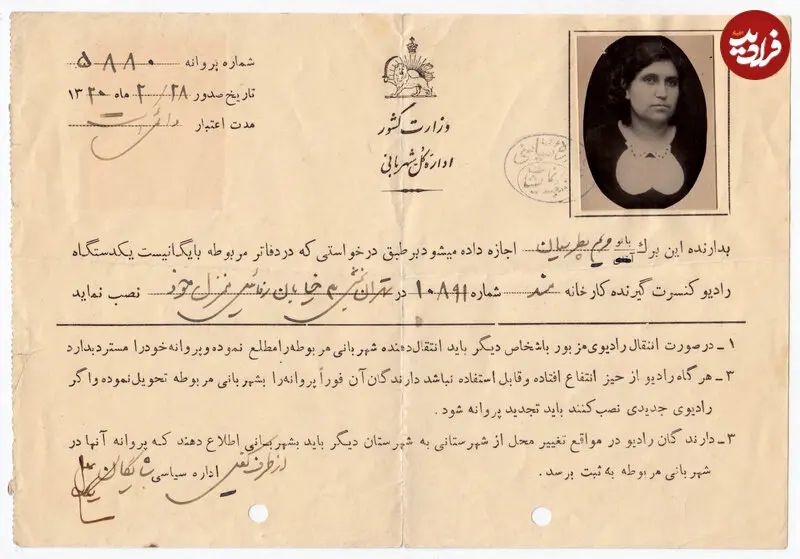 شماره پروانه ۵۸۸۰
تاریخ صدور ۲۸ / ۲ ماه ۱۳۲۰
مدت اعتبار
وزارت کشور
اداره کل شهربانی
فرادید
بدارنده این برك بانو مریم پطرسیان اجازه داده میشود برطبق درخواستی که در دفاتر مربوطه بایگانیست یکدستگاه
رادیو کنسرت گیرنده کارخانه شماره ۱۰۸۹۱ در تهران بخش ۳ خیابان منزل خود نصب نماید
۱ـ در صورت انتقال رادیوی مزبور باشخاص دیگر باید انتقال دهنده شهربانی مربوطه را مطلع نموده و پروانه خود را مسترد بدارد
۳ـ هر گاه رادیو از حیز انتفاع افتاده و قابل استفاده نباشد دارندگان آن فوراً پروانه را بشهربانی مربوطه تحویل نموده و اگر
رادیوی جدیدی نصب کنند باید تجدید پروانه شود .
۳ـ دارند گان رادیو در مواقع تغییر محل از شهرستانی به شهرستان دیگر باید بشهربانی اطلاع دهند که پروانه آنها در
شهربانی مربوطه به ثبت برسد .
از طرف اداره سیاسی